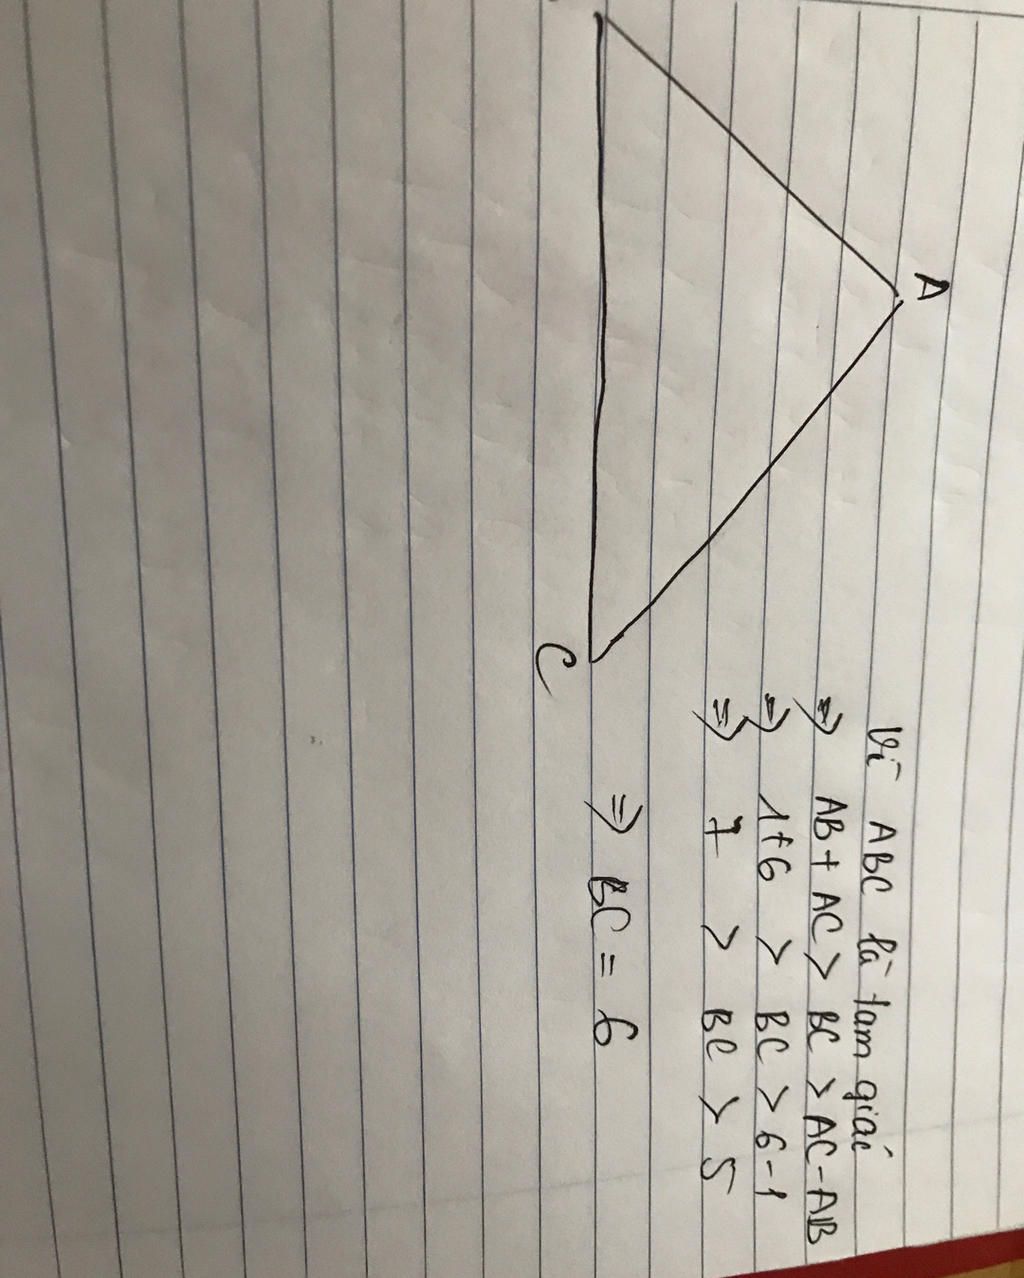 A
C
Vì ABC là tam giác
=> AB + AC > BC > AC - AB
=> 1+6 > BC > 6-1
=> 7 > BC > 5
=> BC = 6